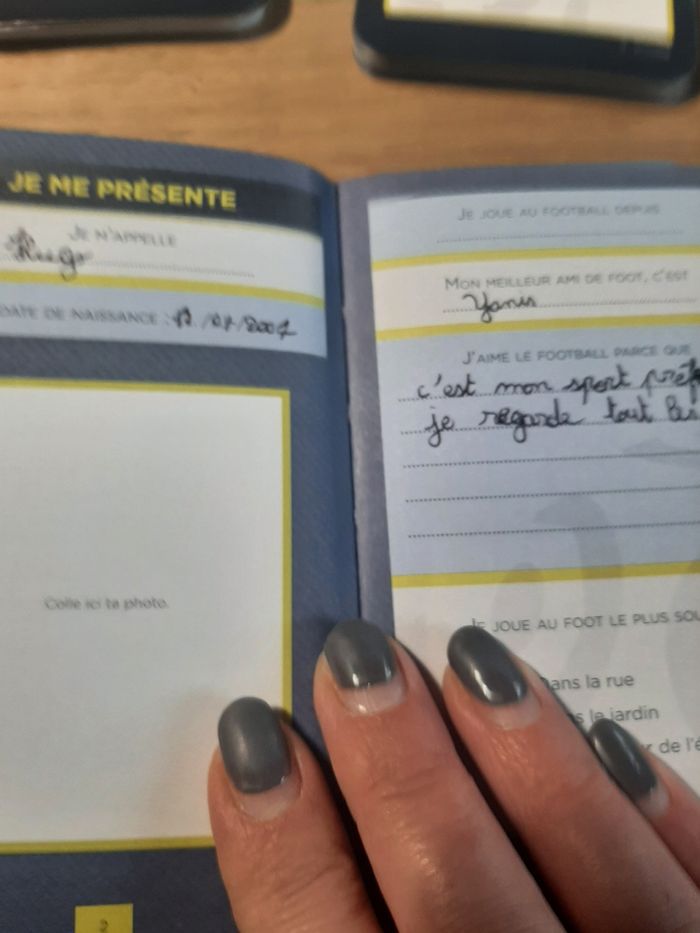 JE ME PRÉSENTE
JE M'APPELLE
Hugo
DATE DE NAISSANCE :
Colle ici ta photo.
2
JE JOUE AU FOOTBALL DEPUIS
MON MEILLEUR AMI DE FOOT, C'EST
Yanis
J'AIME LE FOOTBALL PARCE QUE
c'est mon sport préf
je regarde tout les
JE JOUE AU FOOT LE PLUS SOU
Dans la rue
s le jardin
r de l'é